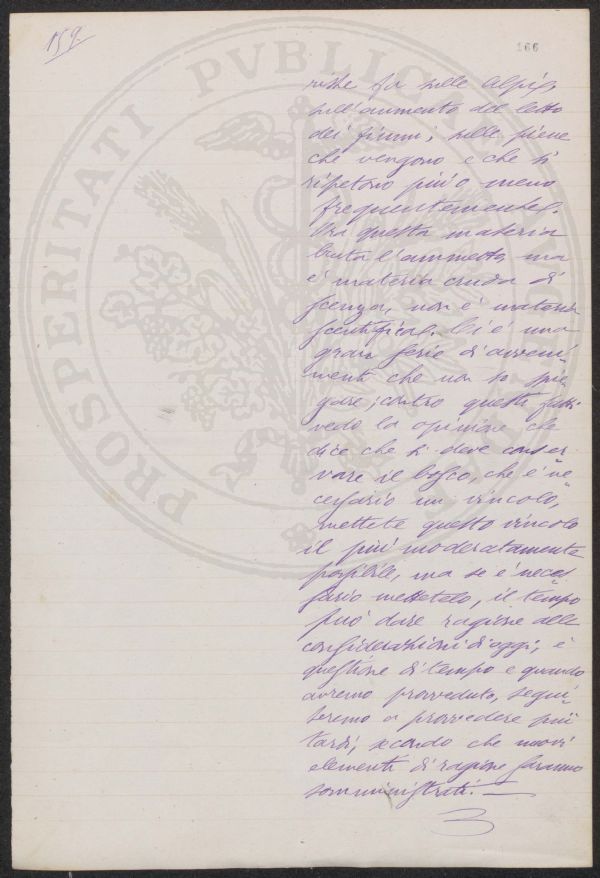 159
166
PROSPERITATI PVBLICAE
riste fa sulle Alpi,
sull'aumento del letto
dei fiumi, sulle piene
che vengono e che si
ripetono più o meno
frequentemente.
Ora questa materia
bruta l'ammetto, ma
è materia cruda di
scienza, non è materia
scentifica. Ci è una
gran serie di avveni
menti che non so spie
gare; contro questi fatti
vedo la opinione che
dice che si deve conser
vare il bosco, che è ne
cessario un vincolo,
mettete questo vincolo
il più moderatamente
possibile, ma se è neces
sario mettetelo, il tempo
può dare ragione alle
considerazioni di oggi; è
questione di tempo e quando
avremo provveduto, segui
teremo a provvedere più
tardi, secondo che nuovi
elementi di ragione saranno
somministrati. —